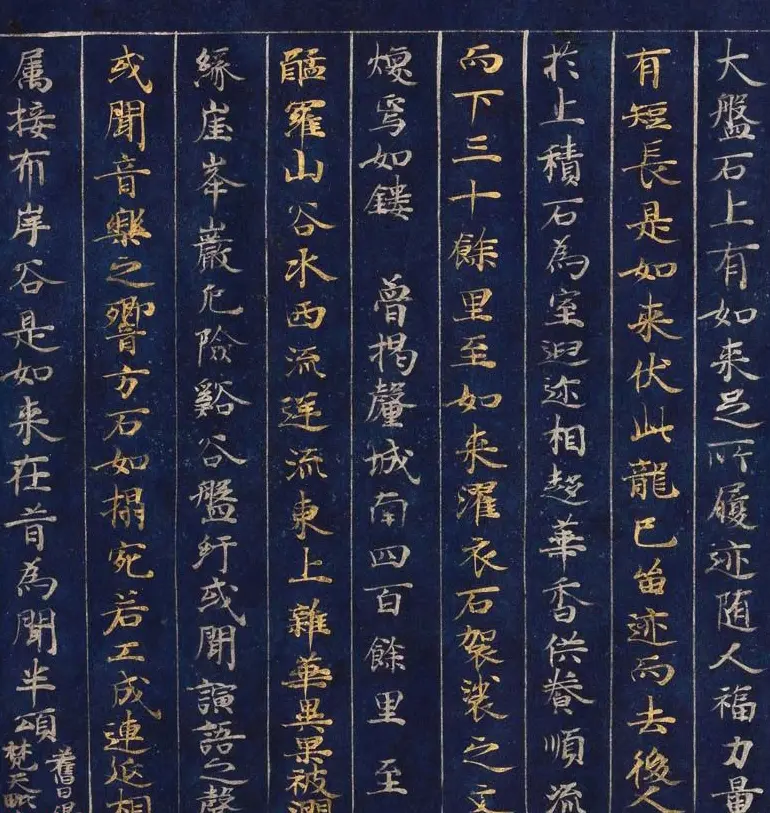 大盤石上有如来足所履迹随人福力量
有短長是如来伏此龍已留迹而去後人
於上積石為室遐迩相趍華香供養順流
而下三十餘里至如来濯衣石袈裟之文
煥焉如鏤　曾揭釐城南四百餘里 至
醯羅山谷水西流逆流東上雜華異果被澗
緣崖峯巖危險谿谷盤紆或聞諠語之聲
或聞音樂之響方石如榻宛若工成連延相
属接布岸谷是如来在昔為聞半頌
舊曰
梵天